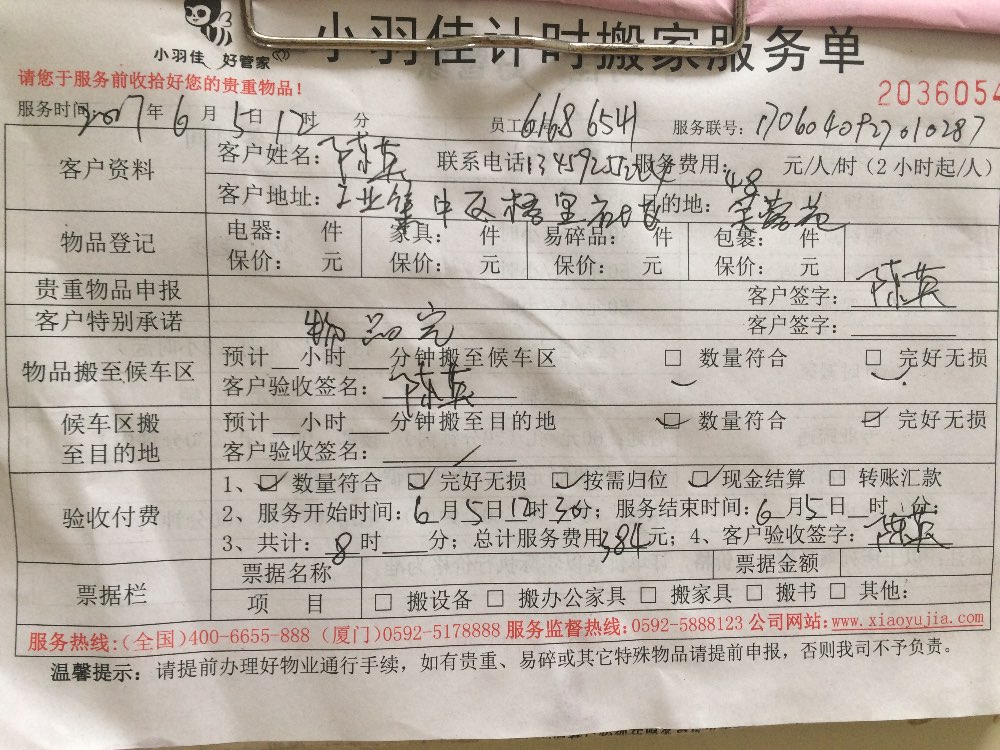 小羽佳 好管家
小羽佳计时搬家服务单
请您于服务前收拾好您的贵重物品！
2036054
服务时间：2017年6月5日12时 分 员工工号：6168 6541 服务联号：1706040927010287
客户资料 客户姓名：陈英 联系电话 服务费用：48 元/人/时（2小时起/人）
客户地址：工业集中区 目的地：芙蓉苑
物品登记 电器： 件 家具： 件 易碎品： 件 包裹： 件
保价： 元 保价： 元 保价： 元 保价： 元
贵重物品申报 客户签字：陈英
客户特别承诺 物品完 客户签字：
物品搬至候车区 预计__小时___分钟搬至候车区 □ 数量符合 □ 完好无损
客户验收签名：陈英
候车区搬至目的地 预计__小时___分钟搬至目的地 ☑ 数量符合 ☑ 完好无损
客户验收签名：
验收付费 1、☑ 数量符合 ☑ 完好无损 ☑ 按需归位 ☑ 现金结算 □ 转账汇款
2、服务开始时间：6月5日12时30分；服务结束时间：6月5日__时__分；
3、共计：8时___分；总计服务费用384元；4、客户验收签字：陈英
票据栏 票据名称 票据金额
项 目 □ 搬设备 □ 搬办公家具 □ 搬家具 □ 搬书 □ 其他：
服务热线：（全国）400-6655-888（厦门）0592-5178888 服务监督热线：0592-5888123 公司网站：www.xiaoyujia.com
温馨提示：请提前办理好物业通行手续，如有贵重、易碎或其它特殊物品请提前申报，否则我司不予负责。